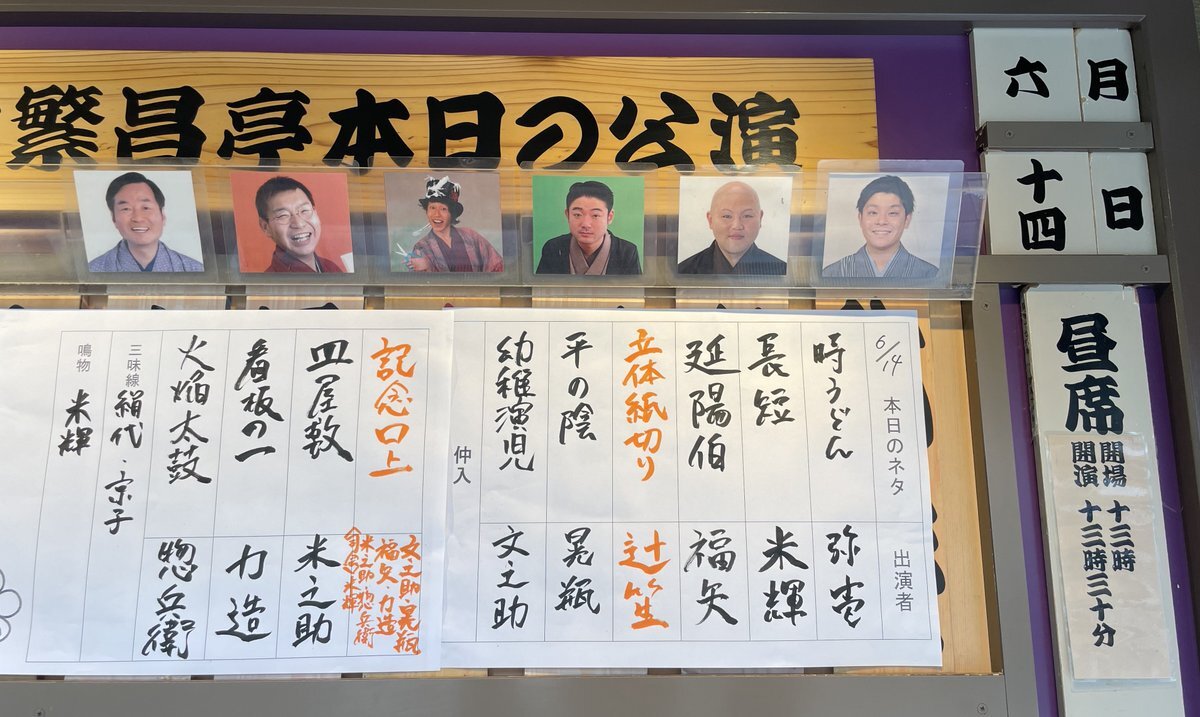 繁昌亭本日の公演
六月
十四日
昼席
開場 十三時
開演 十三時三十分
6/14 本日のネタ
出演者
時うどん 弥壱
長短 米輝
延陽伯 福矢
立体紙切り 辻笙
平の陰 晃瓶
幼稚演児 文之助
仲入
記念口上 文之助・晃瓶 福矢・力造 米之助・惣兵衛 司会・米輝
皿屋敷 米之助
看板の一 力造
火焔太鼓 惣兵衛
三味線 絹代・宗子
鳴物 米輝